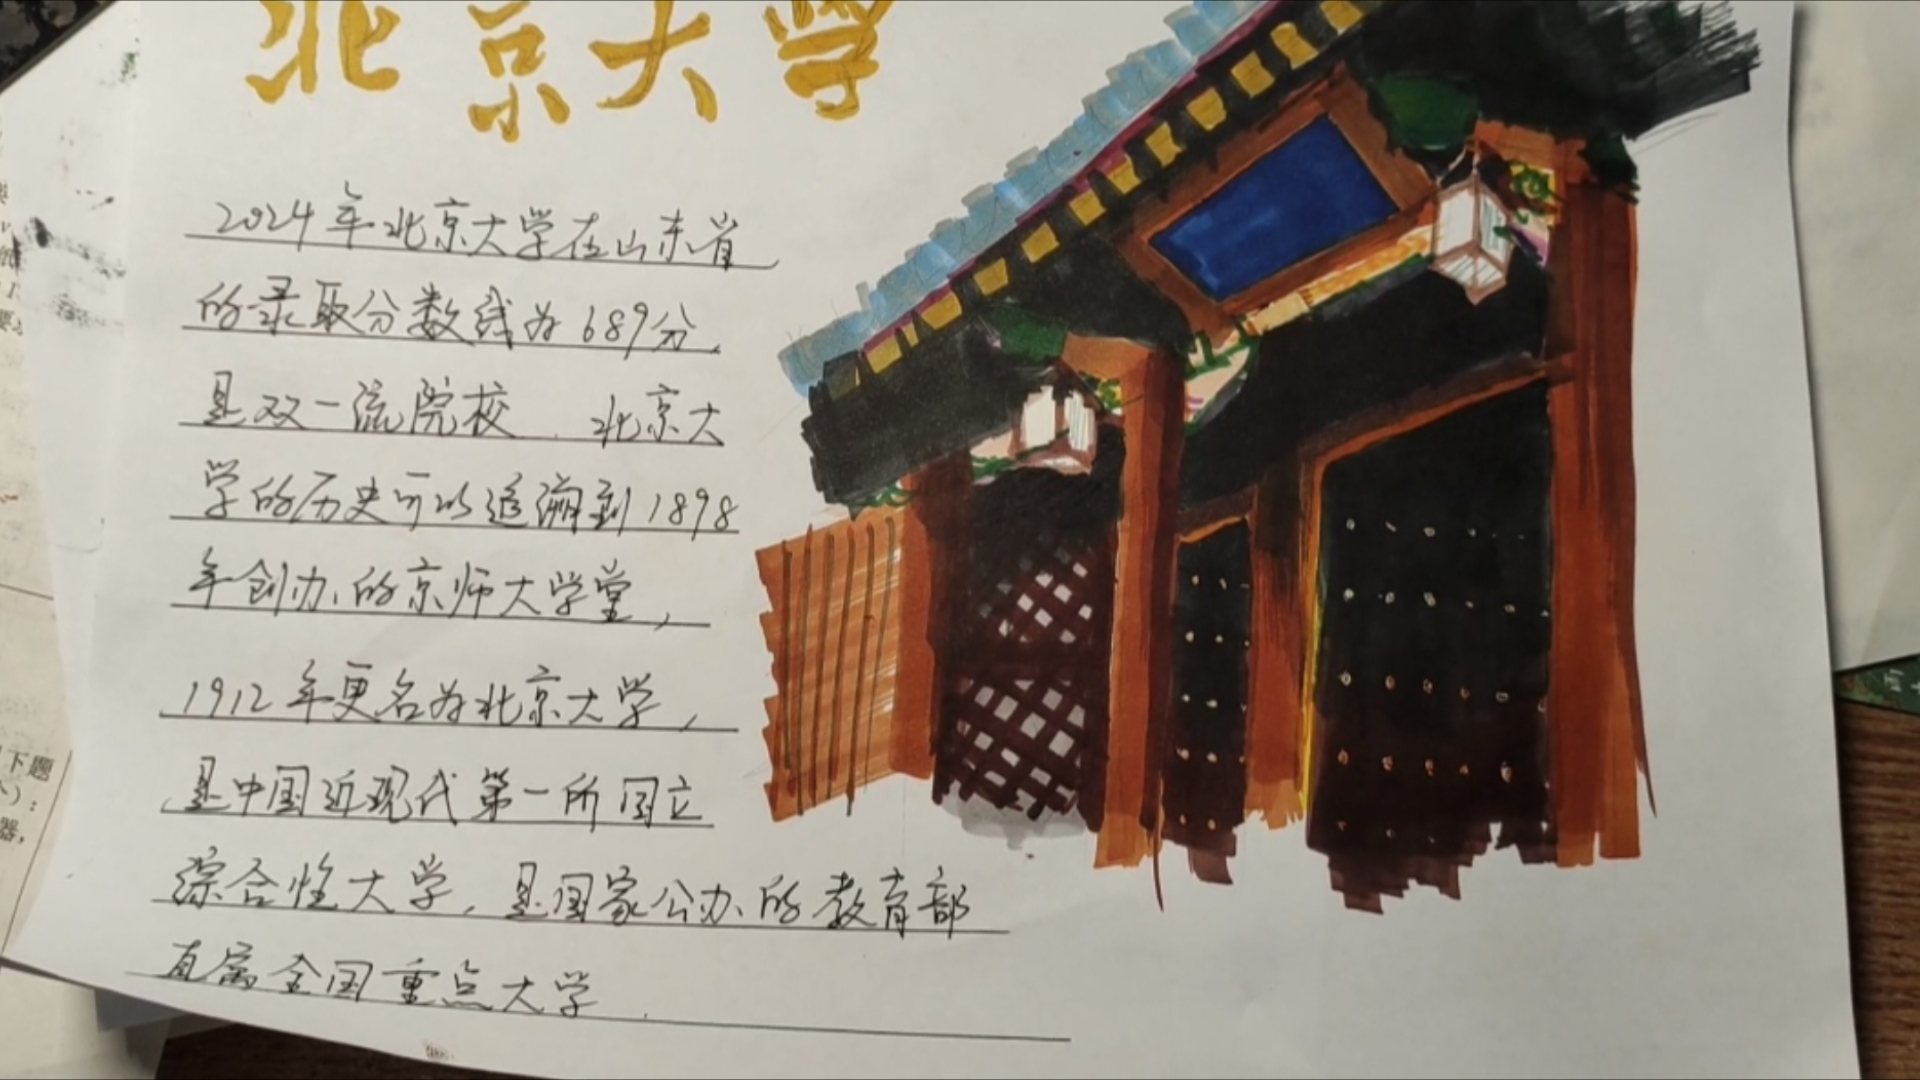 北京大学
2024年北京大学在山东省
的录取分数线为689分,
是双一流院校. 北京大
学的历史可以追溯到1898
年创办的京师大学堂,
1912年更名为北京大学,
是中国近现代第一所国立
综合性大学,是国家公办的教育部
直属全国重点大学.
下题
器,